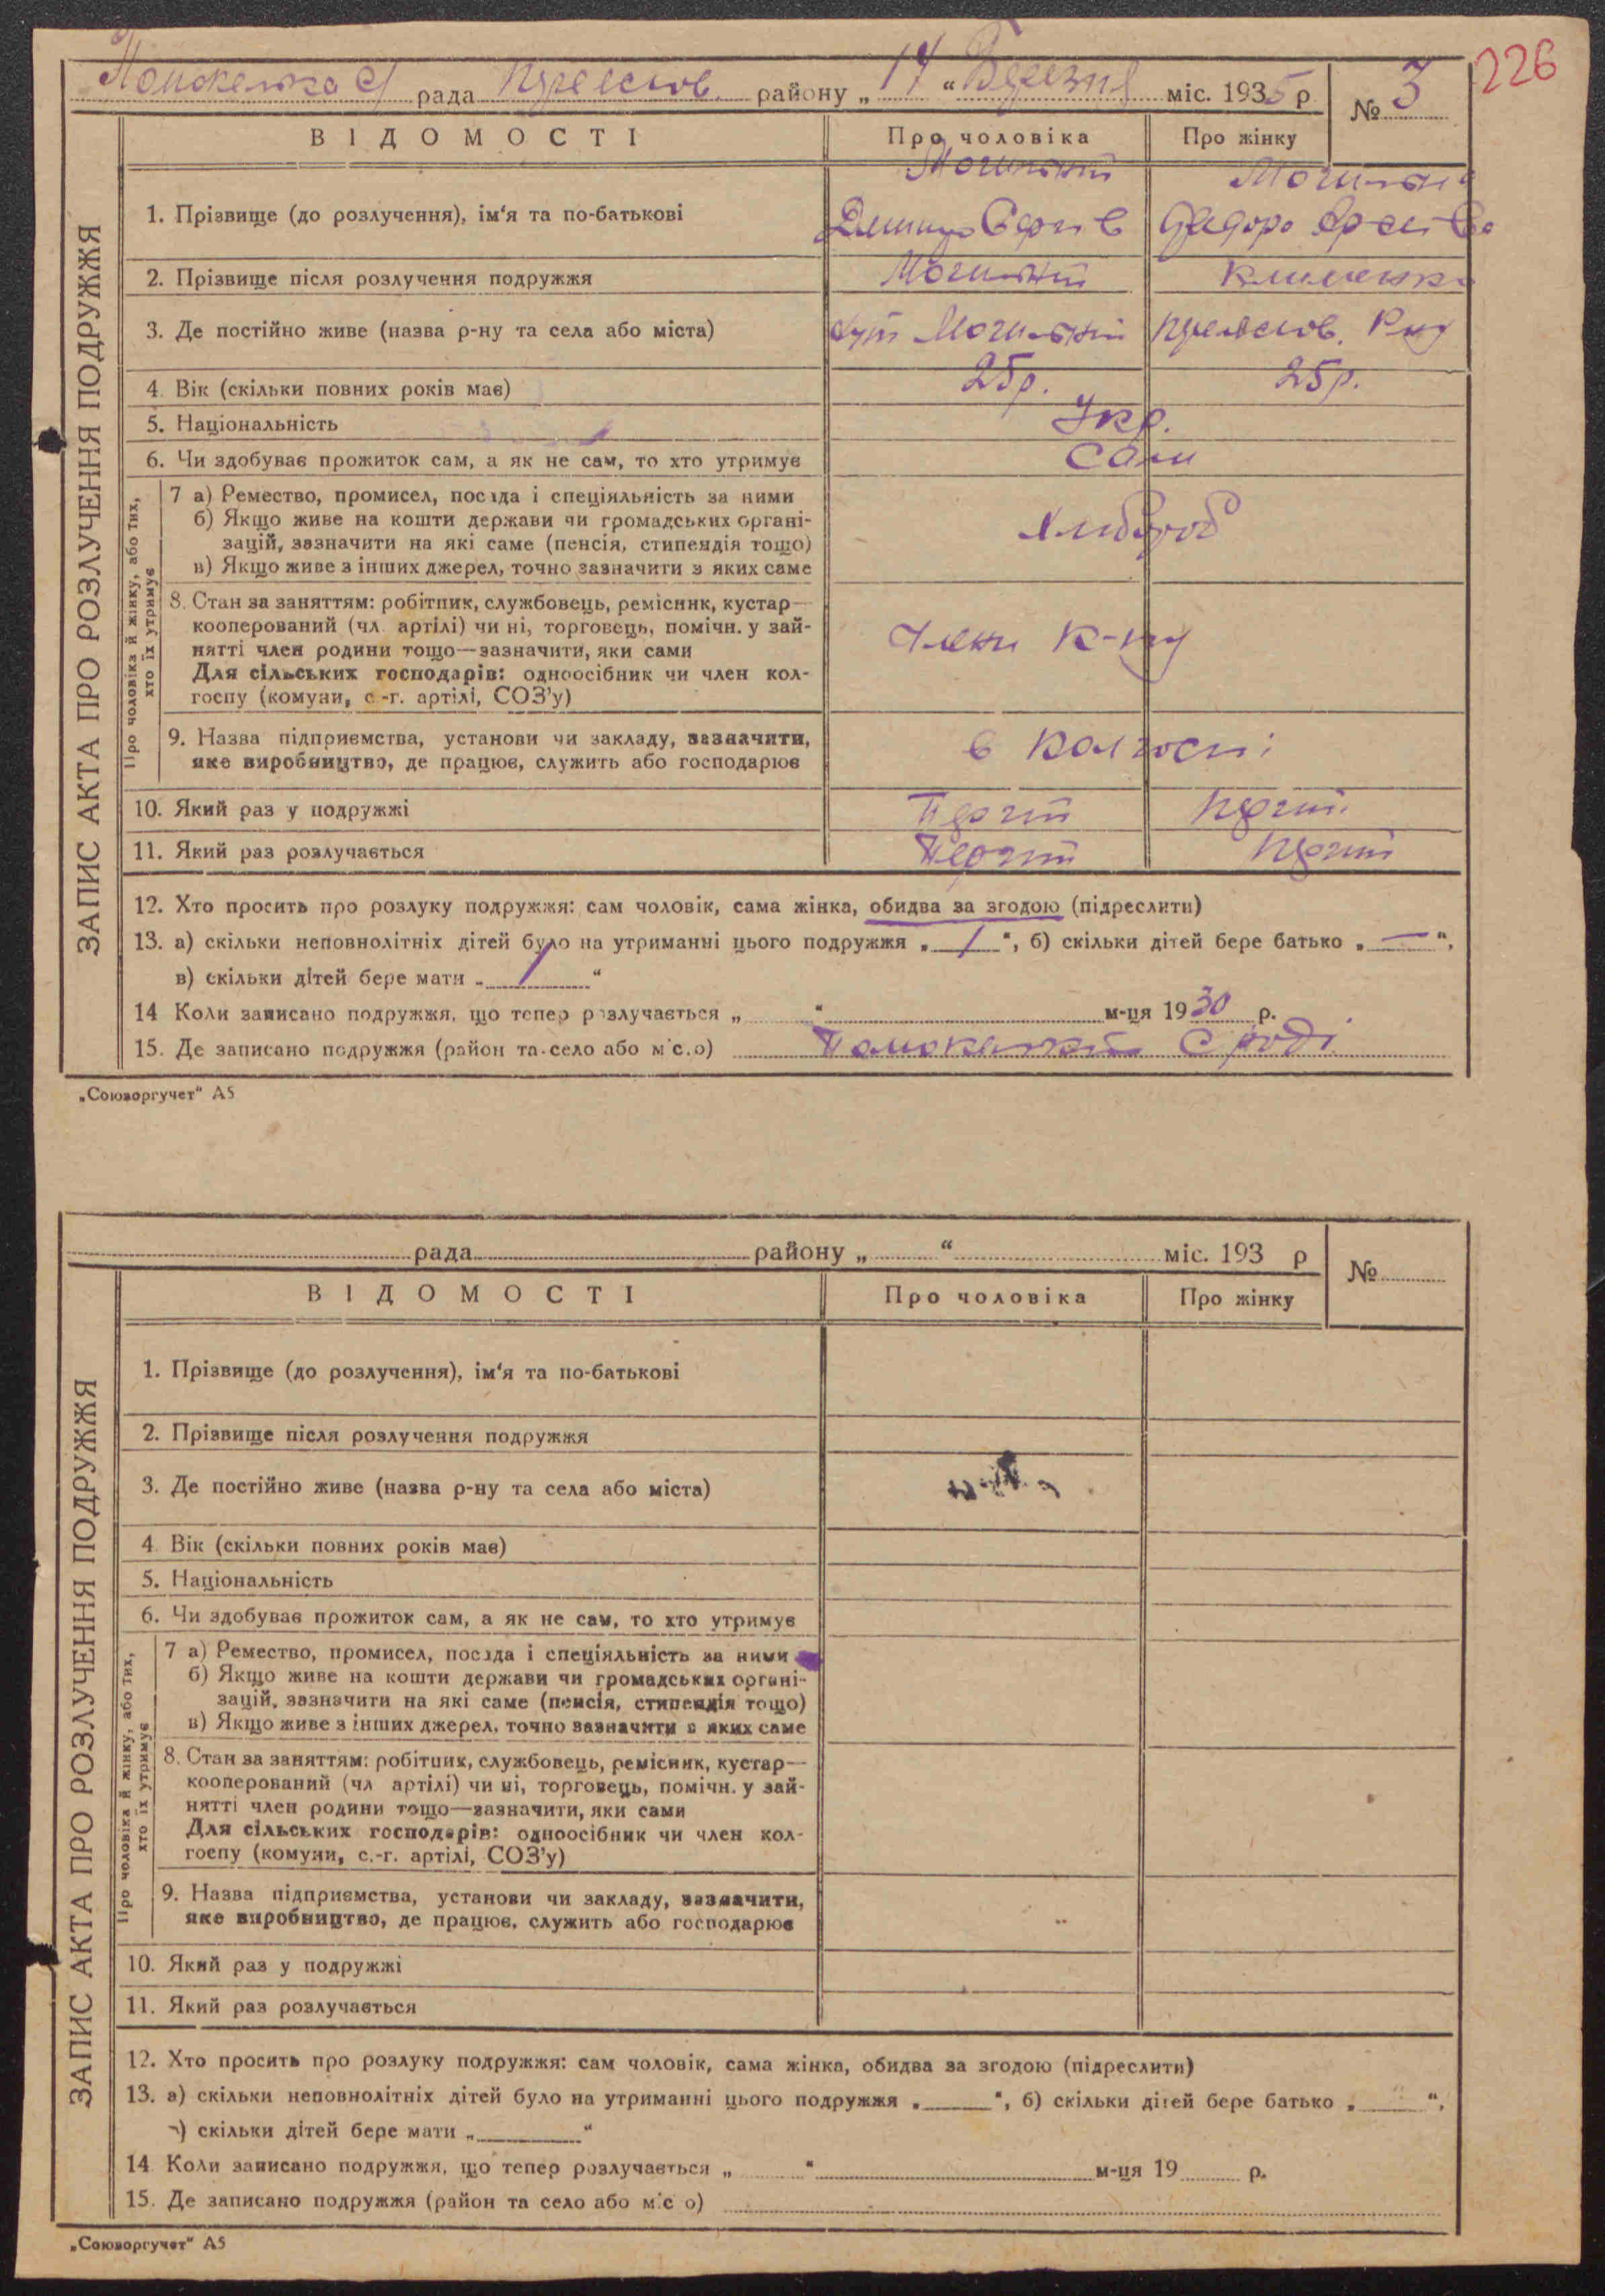 226
рада району „ 14 “ Березня міс. 1935 р. № 3
ВІДОМОСТІ Про чоловіка Про жінку
ЗАПИС АКТА ПРО РОЗЛУЧЕННЯ ПОДРУЖЖЯ
1. Прізвище (до розлучення), ім'я та по-батькові
2. Прізвище після розлучення подружжя Клименко
3. Де постійно живе (назва р-ну та села або міста)
4. Вік (скільки повних років має) 25р. 25р.
5. Національність Укр.
6. Чи здобуває прожиток сам, а як не сам, то хто утримує Сами
Про чоловіка й жінку, або тих, хто їх утримує
7 а) Ремество, промисел, посада і спеціяльність за ними Хлибороб
б) Якщо живе на кошти держави чи громадських органі-
зацій, зазначити на які саме (пенсія, стипендія тощо)
в) Якщо живе з інших джерел, точно зазначити з яких саме
8. Стан за заняттям: робітник, службовець, ремісник, кустар—
кооперований (чл. артілі) чи ні, торговець, помічн. у зай-
нятті член родини тощо—зазначити, яки сами Члени к-пу
Для сільських господарів: одноосібник чи член кол-
госпу (комуни, с.-г. артілі, СОЗ'у)
9. Назва підприємства, установи чи закладу, зазначити, в колгоспі
яке виробництво, де працює, служить або господарює
10. Який раз у подружжі
11. Який раз розлучається
12. Хто просить про розлуку подружжя: сам чоловік, сама жінка, обидва за згодою (підреслити)
13. а) скільки неповнолітніх дітей було на утриманні цього подружжя „ 1 “, б) скільки дітей бере батько „ — “,
в) скільки дітей бере мати „ 1 “
14 Коли записано подружжя, що тепер розлучається „ “ м-ця 1930 р.
15. Де записано подружжя (район та село або місто)
„Союзоргучет“ А5
рада району „ “ міс. 193 р №
ВІДОМОСТІ Про чоловіка Про жінку
ЗАПИС АКТА ПРО РОЗЛУЧЕННЯ ПОДРУЖЖЯ
1. Прізвище (до розлучення), ім'я та по-батькові
2. Прізвище після розлучення подружжя
3. Де постійно живе (назва р-ну та села або міста)
4 Вік (скільки повних років має)
5. Національність
6. Чи здобуває прожиток сам, а як не сам, то хто утримує
Про чоловіка й жінку, або тих, хто їх утримує
7 а) Ремество, промисел, посада і спеціяльність за ними
б) Якщо живе на кошти держави чи громадських органі-
зацій, зазначити на які саме (пенсія, стипендія тощо)
в) Якщо живе з інших джерел, точно зазначити з яких саме
8. Стан за заняттям: робітник, службовець, ремісник, кустар—
кооперований (чл артілі) чи ні, торговець, помічн. у зай-
нятті член родини тощо—зазначити, яки сами
Для сільських господарів: одноосібник чи член кол-
госпу (комуни, с.-г. артілі, СОЗ'у)
9. Назва підприємства, установи чи закладу, зазначити,
яке виробництво, де працює, служить або господарює
10. Який раз у подружжі
11. Який раз розлучається
12. Хто просить про розлуку подружжя: сам чоловік, сама жінка, обидва за згодою (підреслити)
13. а) скільки неповнолітніх дітей було на утриманні цього подружжя „ “, б) скільки дітей бере батько „ “,
в) скільки дітей бере мати „ “
14 Коли записано подружжя, що тепер розлучається „ “ м-ця 19 р.
15. Де записано подружжя (район та село або місто)
„Союзоргучет“ А5